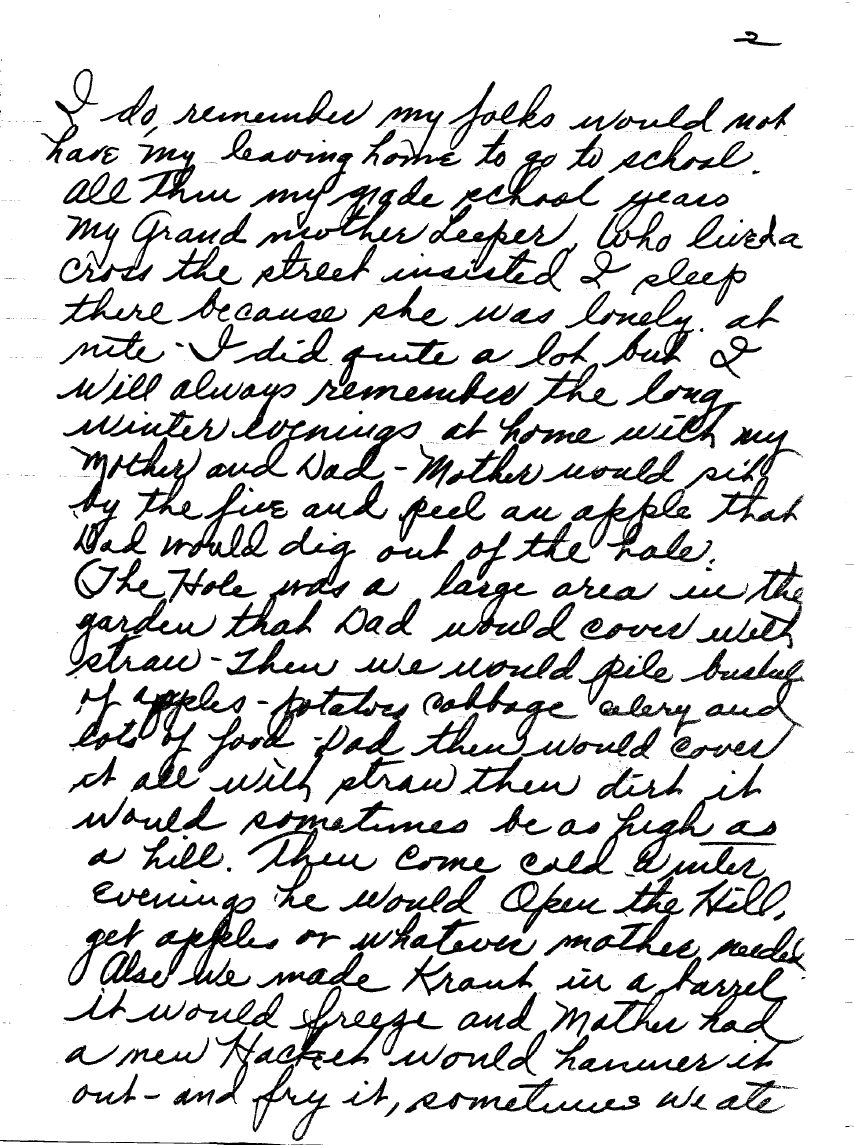 2
I do, remember my folks would not
have my leaving home to go to school.
All thru my grade school years
My Grand mother Leeper, Who lived a
cross the street insisted I sleep
there because she was lonely. at
nite - I did quite a lot but I
will always remember the long
winter evenings at home with my
Mother and Dad - Mother would sit
by the fire and peel an apple that
Dad would dig out of the hole.
(The Hole was a large area in the
garden that Dad would cover with
straw - Then we would pile bushel
of apples - potatoes cabbage celery and
lots of food - Dad then would cover
it all with straw then dirt it
would sometimes be as high as
a hill. Then come cold winter
evenings he would Open the Hill,
get apples or whatever mother needed
Also we made Kraut in a barrel
it would freeze and Mother had
a new Hachet would hammer it
out - and fry it, sometimes we ate